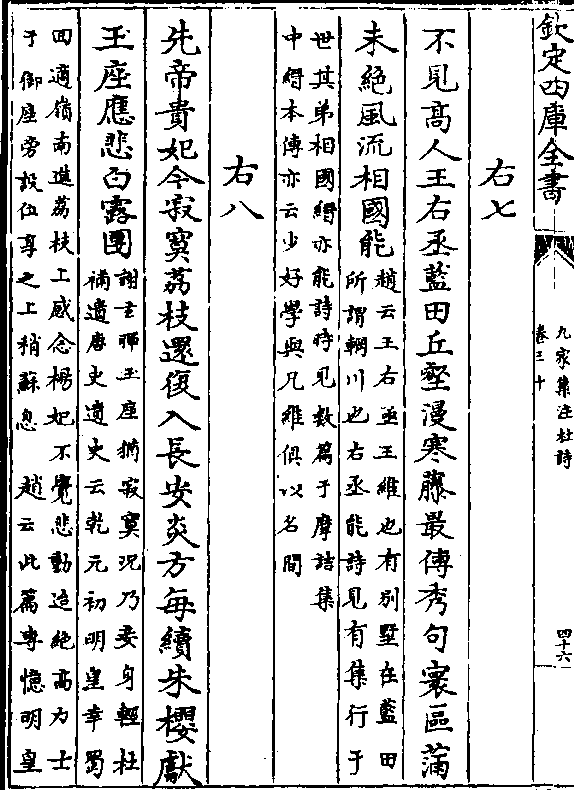 欽定四庫全書
九家集注杜詩
卷三十
四十六
右七
不見高人王右丞藍田丘壑漫寒藤最傳秀句寰區滿
未絶風流相國能
趙云王右丞王維也有别墅在藍田
所謂輞川也右丞能詩見有集行于
世其弟相國縉亦能詩時見數篇于摩詰集
中縉本傳亦云少好學與兄維俱以名聞
右八
先帝貴妃今寂寞荔枝還復入長安炎方每續朱櫻獻
玉座應悲白露團
謝玄暉玉座猶寂寞況乃妾身輕杜
補遺唐史遺史云乾元初明皇幸蜀
回適嶺南進荔枝上感念楊妃不覺悲動追絶高力士
于御座旁設位享之上稍蘇息 趙云此篇專憶明皇